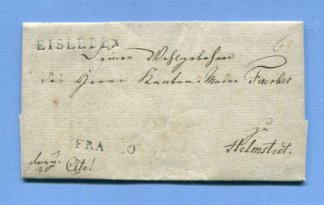 EISLEBEN
Seiner Wohlgebohren
des Herrn Kanton-Maire Faerber
zu
Helmstedt.
FRANCO
frey.
Cito!